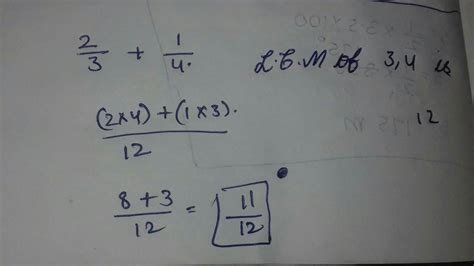 2/3 + 1/4. L.C.M of 3,4 is
12
(2×4)+(1×3).
/12
8+3/12 = 11/12